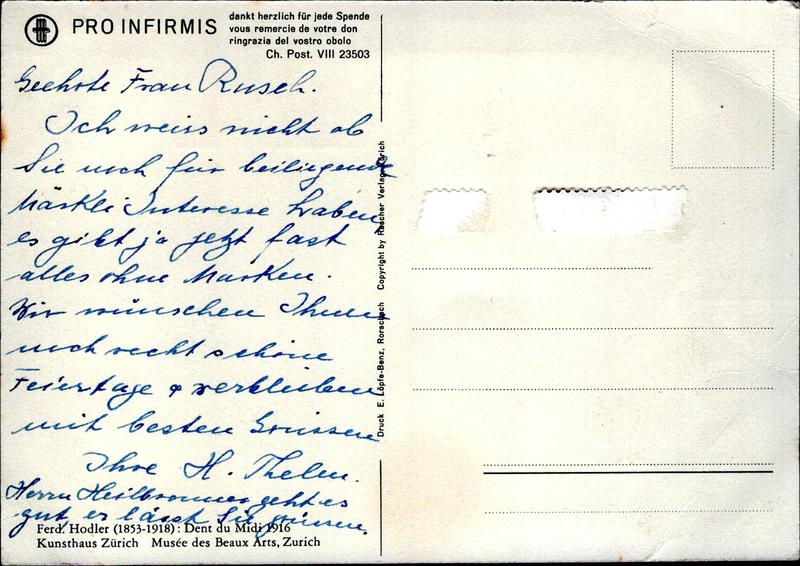 PRO INFIRMIS
dankt herzlich für jede Spende
vous remercie de votre don
ringrazia del vostro obolo
Ch. Post. VIII 23503
Geehrte Frau Rusch.
Ich weiss nicht ob
Sie noch für beiliegende
Märkli Interesse haben
es gibt ja jetzt fast
alles ohne Marken.
Wir wünschen Ihnen
noch recht schöne
Feiertage & verbleiben
mit besten Grüssen
Ihre H. Thelen.
Herrn Heilbronner geht es
gut, er lässt Sie grüssen.
Ferd. Hodler (1853-1918): Dent du Midi 1916
Kunsthaus Zürich Musée des Beaux Arts, Zurich
Druck E. Löpfe-Benz, Rorschach Copyright by Rascher Verlag Zürich